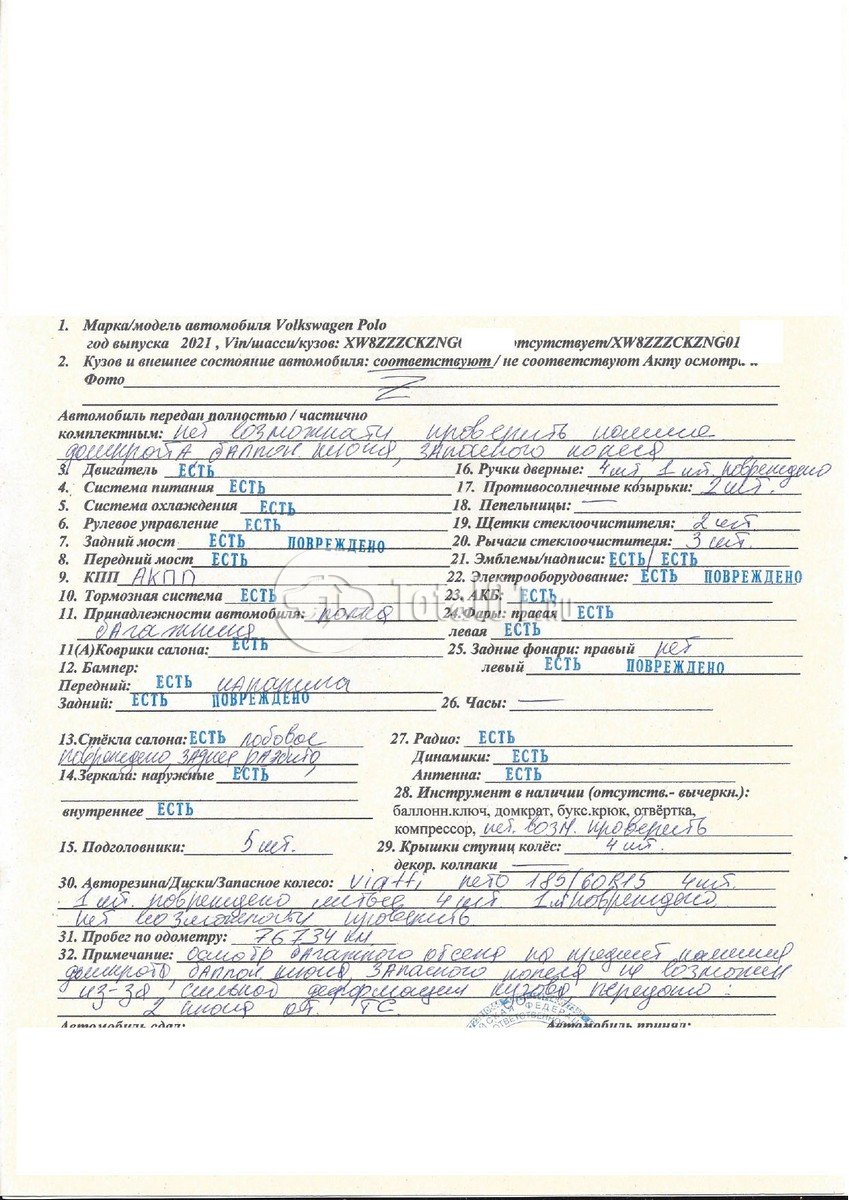 1. Марка/модель автомобиля Volkswagen Polo
год выпуска 2021 , Vin/шасси/кузов: XW8ZZZCKZNG отсутствует/XW8ZZZCKZNG01
2. Кузов и внешнее состояние автомобиля: соответствуют / не соответствуют Акту осмотр
Фото Z
Автомобиль передан полностью / частично
комплектным: нет возможности проверить наличие
домкрата баллон ключа, запасного колеса
3. Двигатель ЕСТЬ
4. Система питания ЕСТЬ
5. Система охлаждения ЕСТЬ
6. Рулевое управление ЕСТЬ
7. Задний мост ЕСТЬ ПОВРЕЖДЕНО
8. Передний мост ЕСТЬ
9. КПП АКПП
10. Тормозная система ЕСТЬ
11. Принадлежности автомобиля: полка
багажника
11(А)Коврики салона: ЕСТЬ
12. Бампер:
Передний: ЕСТЬ царапина
Задний: ЕСТЬ ПОВРЕЖДЕНО
13.Стёкла салона: ЕСТЬ лобовое
повреждено, заднее разбито,
14.Зеркала: наружные ЕСТЬ
внутреннее ЕСТЬ
15. Подголовники: 5 шт.
16. Ручки дверные: 4 шт, 1 шт. повреждено
17. Противосолнечные козырьки: 2 шт.
18. Пепельницы: —
19. Щетки стеклоочистителя: 2 шт.
20. Рычаги стеклоочистителя: 3 шт.
21. Эмблемы/надписи: ЕСТЬ/ ЕСТЬ
22. Электрооборудование: ЕСТЬ ПОВРЕЖДЕНО
23. АКБ: ЕСТЬ
24.Фары: правая ЕСТЬ
левая ЕСТЬ
25. Задние фонари: правый нет
левый ЕСТЬ ПОВРЕЖДЕНО
26. Часы: —
27. Радио: ЕСТЬ
Динамики: ЕСТЬ
Антенна: ЕСТЬ
28. Инструмент в наличии (отсутств.- вычеркн.):
баллонн.ключ, домкрат, букс.крюк, отвёртка,
компрессор, нет. возм. проверить
29. Крышки ступиц колёс: 4 шт.
декор. колпаки —
30. Авторезина/Диски/Запасное колесо: Viatti лето 185/60R15 4шт
1 шт. повреждено литые 4 шт 1 повреждено
нет возможности проверить
31. Пробег по одометру: 76734 км
32. Примечание: Осмотр багажного отсека на предмет наличия
домкрата, баллон ключа, запасного колеса не возможен
из-за сильной деформации кузова передано:
2 ключа от. ТС.
Автомобиль сдал: Автомобиль принял:
ФЕДЕРА
ОТВЕТСТВЕННО
Total01.ru